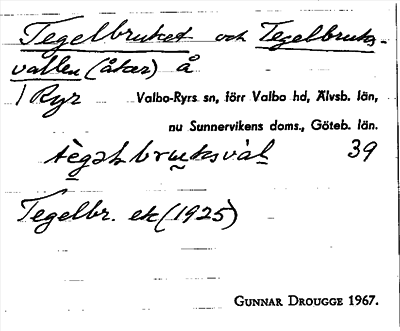 Tegelbruket och Tegelbruks-
vallen (åker) å
1 Ryr
Valbo-Ryrs sn, förr Valbo hd, Älvsb. län,
nu Sunnervikens doms., Göteb. län.
39
Tegelbr. ek (1925)
GUNNAR DROUGGE 1967.